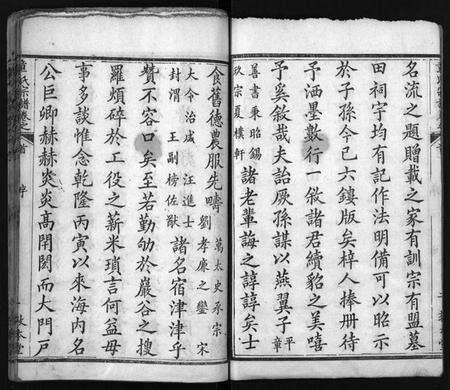 名流之題贈載之家有訓宗有盟墓
田祠宇均有記作法明備可以昭示
於子孫今已六鏤版矣梓人捧册待
予洒墨數行一敘諸君續貂之美嘻
予奚敘哉夫詒厥孫謀以燕翼子平章
善書秉昭錫
玖宗夏樸軒
諸老輩誨之諄諄矣士
食舊德農服先疇
萬太史承宗
劉孝廉之鑾 宋
大令治咸 汪進士
封渭 王副榜佐猷
諸名宿津津乎
贊不容口矣至若勤劬於嚴谷之搜
羅煩碎於工役之薪米瑣言何益毋
事多談惟念乾隆丙寅以來海内名
公巨卿赫赫炎炎高閈閎而大門戸
宗譜卷之首 序